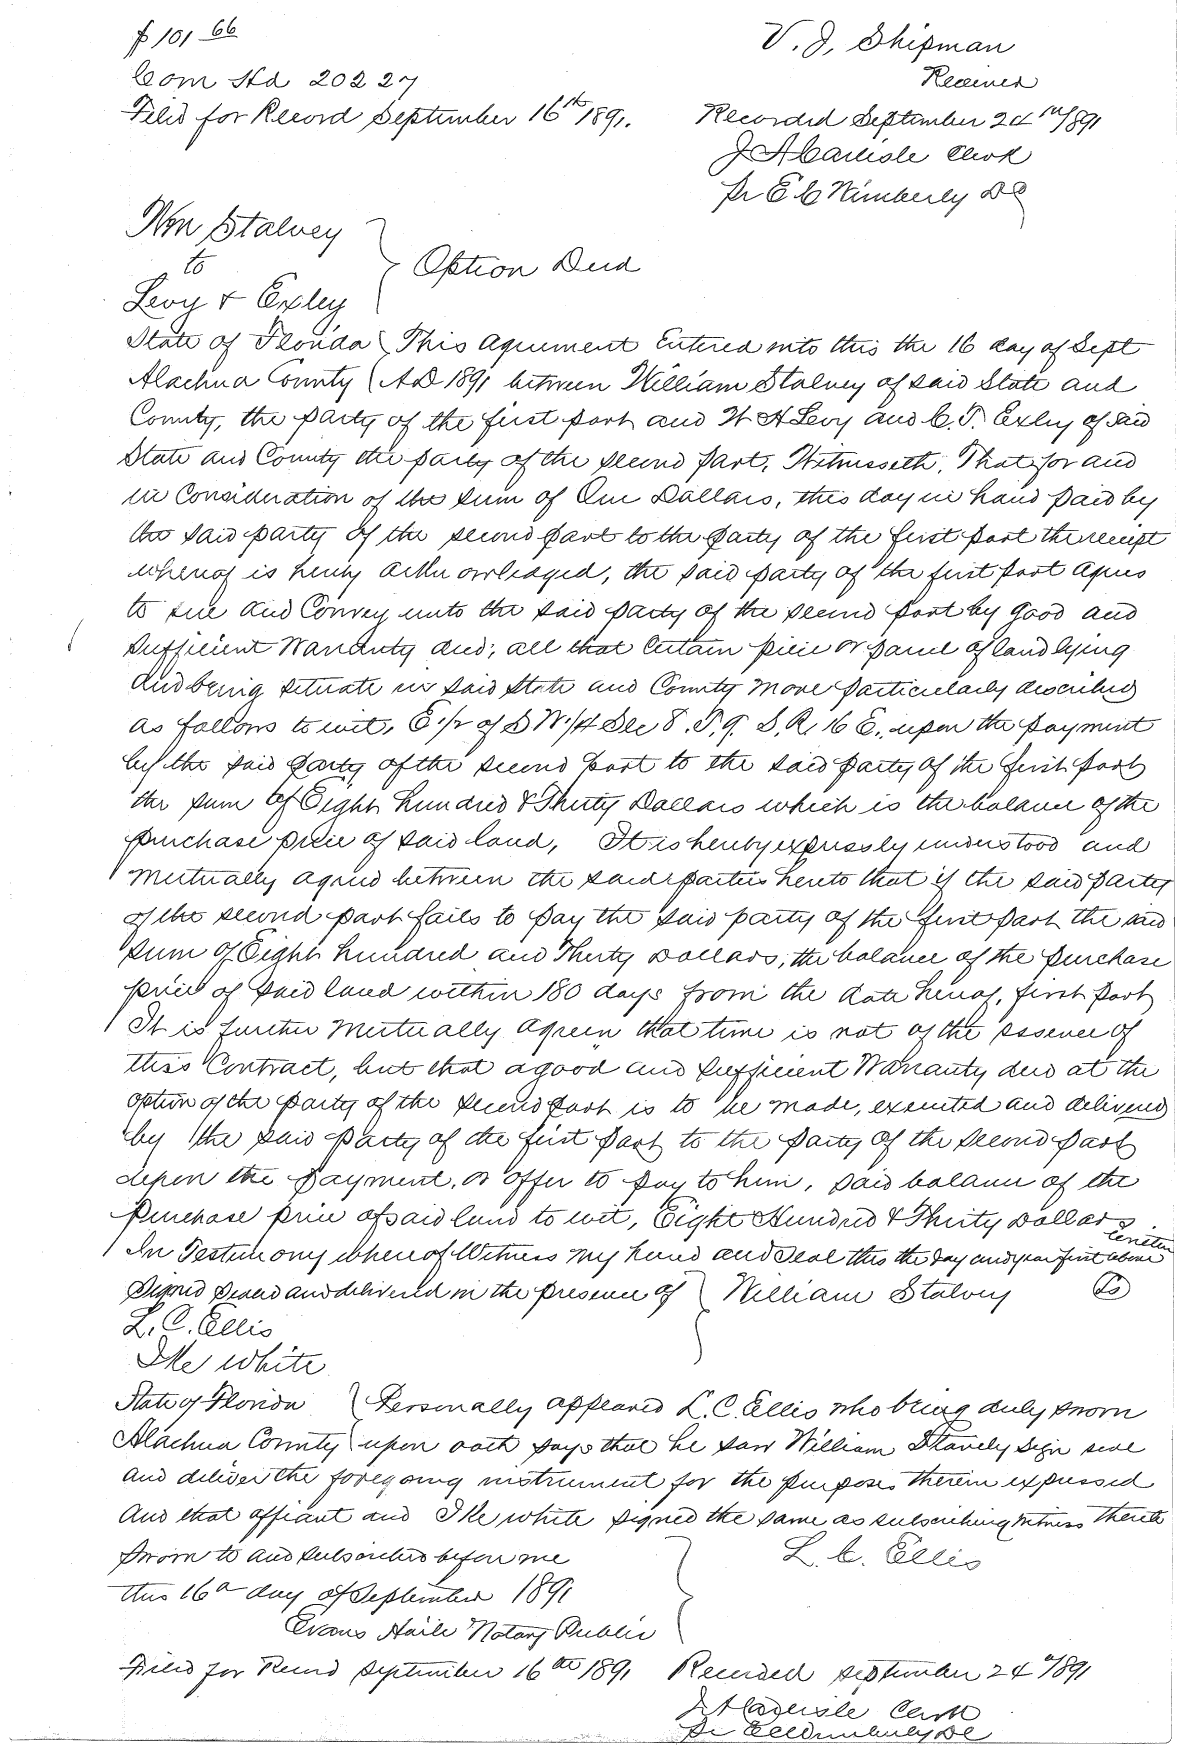 $101 66
V. J. Shipman
Com Hd 202 27
Receiver
Filed for Record September 16th 1891.
Recorded September 24th 1891
J A Carlisle Clerk
Pr E C Wimberly DC
Wm Stalvey
to
Levy & Exley
Option Deed
State of Florida This Agreement Entered into this the 16 day of Sept
Alachua County AD 1891 between William Stalvey of said State and
County, the party of the first part and W H Levy and C. T. Exley of said
State and County the party of the second part. Witnesseth, That for and
in Consideration of the sum of One Dollars, this day in hand paid by
the said party of the second part to the party of the first part the receipt
whereof is hereby acknowledged, the said party of the first part agrees
to sell and Convey unto the said party of the second part by good and
sufficient Warranty deed, all that certain piece or parcel of land lying
and being situate in said State and County more particularly described
as follows to wit, E 1/2 of S W 1/4 Sec 8. T. 9. S. R. 16 E. upon the payment
by the said party of the second part to the said party of the first part
the sum of Eight hundred & Thirty Dollars which is the balance of the
purchase price of said land, It is hereby expressly understood and
mutually agreed between the said parties hereto that if the said party
of the second part fails to pay the said party of the first part the said
sum of Eight hundred and Thirty Dollars, the balance of the purchase
price of said land within 180 days from the date hereof, first part
It is further mutually agreen that time is not of the essence of
this Contract, but that a good and sufficient Warranty deed at the
option of the party of the second part is to be made, executed and delivered
by the said party of the first part to the party of the second part
upon the payment, or offer to pay to him, said balance of the
purchase price of said land to wit, Eight Hundred & Thirty Dollars
In Testimony whereof Witness my hand and seal this the day and year first above written
Signed Sealed and delivered in the presence of William Stalvey Ls
L. C. Ellis
Ike White
State of Florida Personally appeared L. C. Ellis who being duly sworn
Alachua County upon oath says that he saw William Stavely sign seal
and deliver the foregoing instrument for the purposes therein expressed
and that affiant and Ike White signed the same as subscribing witness thereto
Sworn to and subscribed before me
L. C. Ellis
this 16th day of September 1891
Evans Haile Notary Public
Filed for Record September 16th 1891 Recorded September 24th 1891
J A Carlisle Clerk
Pr E C Wimberly DC